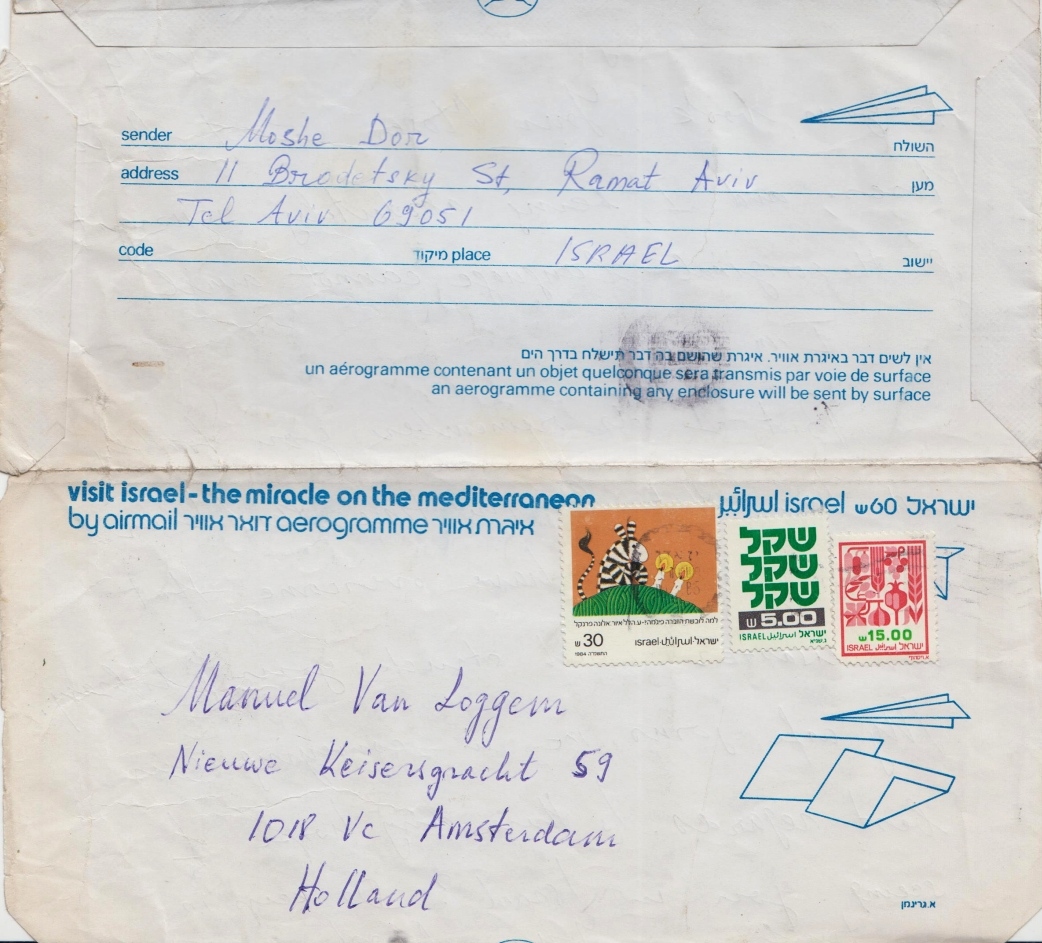 sender Moshe Dor השולח
address 11 Brodetsky St, Ramat Aviv מען
Tel Aviv 69051
code מיקוד place ISRAEL יישוב
אין לשים דבר באיגרת אוויר. איגרת שהושם בה דבר תישלח בדרך הים
un aérogramme contenant un objet quelconque sera transmis par voie de surface
an aerogramme containing any enclosure will be sent by surface
visit israel - the miracle on the mediterranean
ישראל 60 ש israel اسرائيل
by airmail דואר אוויר aerogramme איגרת אוויר
למה לובשת הזברה פיג'מה?-ע.הלל איור:אלונה פרנקל
ש 30 israel-اسرائيل-ישראל
1984 התשמ"ד
שקל
שקל
שקל
ש 5.00
ISRAEL اسرائيل ישראל
ש 15.00
ISRAEL اسرائيل ישראל
Manuel Van Loggem
Nieuwe Keisersgracht 59
1018 Vc Amsterdam
Holland
א.גרינמן